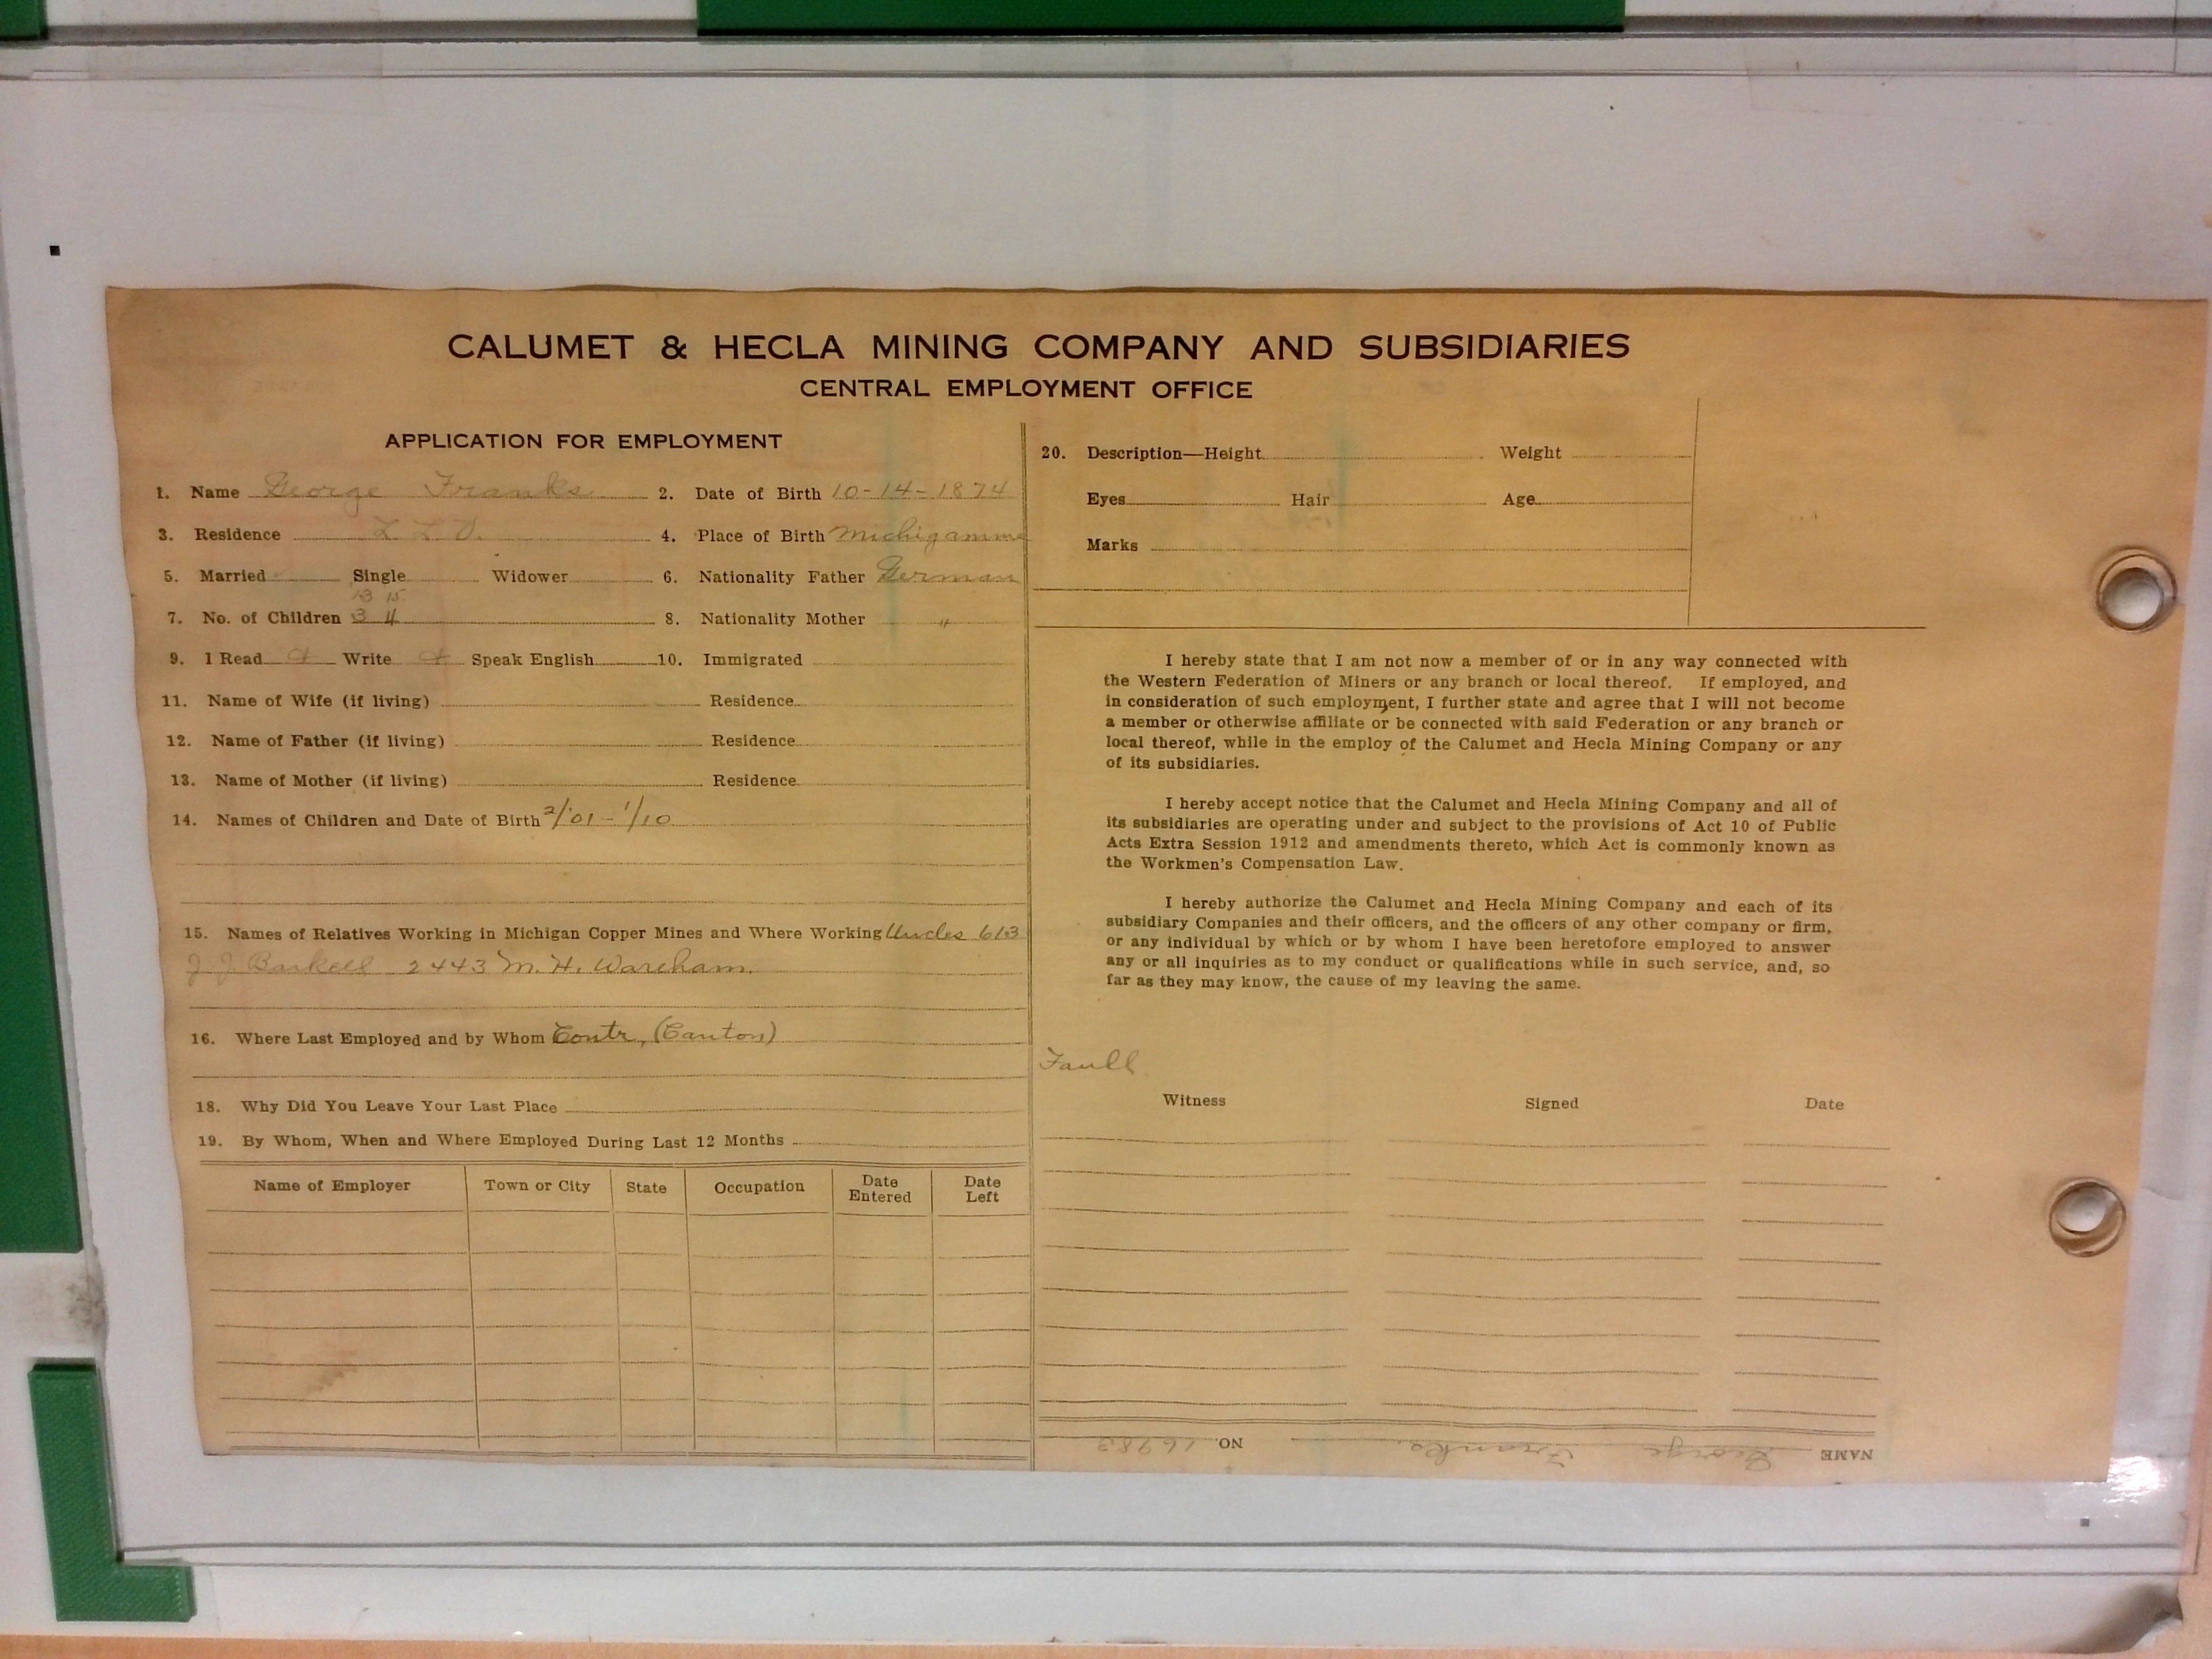 CALUMET & HECLA MINING COMPANY AND SUBSIDIARIES
CENTRAL EMPLOYMENT OFFICE
APPLICATION FOR EMPLOYMENT
1. Name George Franks 2. Date of Birth 10-14-1874
3. Residence L. L. 4. Place of Birth Michigamme
5. Married Single Widower 6. Nationality Father German
13 15
7. No. of Children 3 4 8. Nationality Mother "
9. I Read Write Speak English 10. Immigrated
11. Name of Wife (if living) Residence
12. Name of Father (if living) Residence
13. Name of Mother (if living) Residence
14. Names of Children and Date of Birth 2/'01 - 1/10
15. Names of Relatives Working in Michigan Copper Mines and Where Working Uncles 613
J. J. Barkell 2443 M. H. Wareham.
16. Where Last Employed and by Whom Contr, (Canton)
18. Why Did You Leave Your Last Place
19. By Whom, When and Where Employed During Last 12 Months
Name of Employer Town or City State Occupation Date Entered Date Left
20. Description—Height Weight
Eyes Hair Age
Marks
I hereby state that I am not now a member of or in any way connected with
the Western Federation of Miners or any branch or local thereof. If employed, and
in consideration of such employment, I further state and agree that I will not become
a member or otherwise affiliate or be connected with said Federation or any branch or
local thereof, while in the employ of the Calumet and Hecla Mining Company or any
of its subsidiaries.
I hereby accept notice that the Calumet and Hecla Mining Company and all of
its subsidiaries are operating under and subject to the provisions of Act 10 of Public
Acts Extra Session 1912 and amendments thereto, which Act is commonly known as
the Workmen's Compensation Law.
I hereby authorize the Calumet and Hecla Mining Company and each of its
subsidiary Companies and their officers, and the officers of any other company or firm,
or any individual by which or by whom I have been heretofore employed to answer
any or all inquiries as to my conduct or qualifications while in such service, and, so
far as they may know, the cause of my leaving the same.
Faull
Witness Signed Date
NAME George Franks. NO. 16983